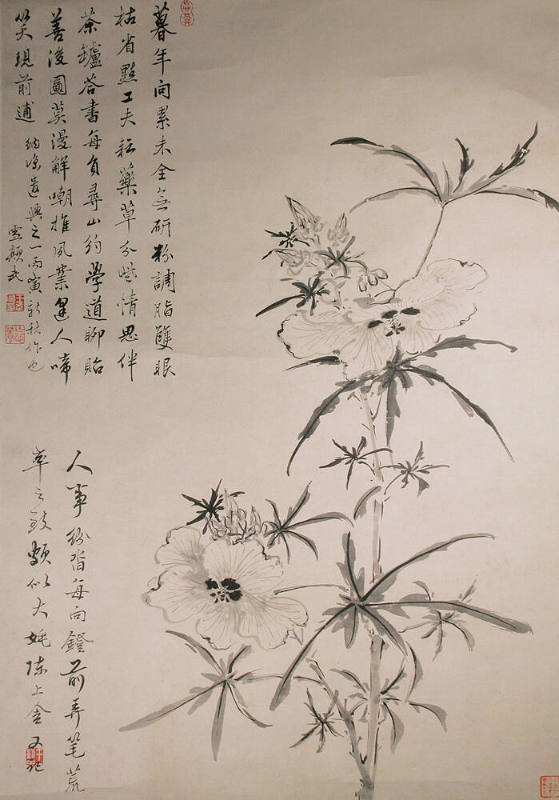 暮年向禦未全無研粉調脂雙眼
枯省點工夫耘藥草分些情思伴
茶鑪答書每負尋山約學道聊貽
善後圖莫漫解嘲推夙業逢人啼
笑現前逋 納涼遣興之一丙寅新秋作也
人事紛沓每向鐙前弄筆荒
率之致頗似大姚陳上舍又記